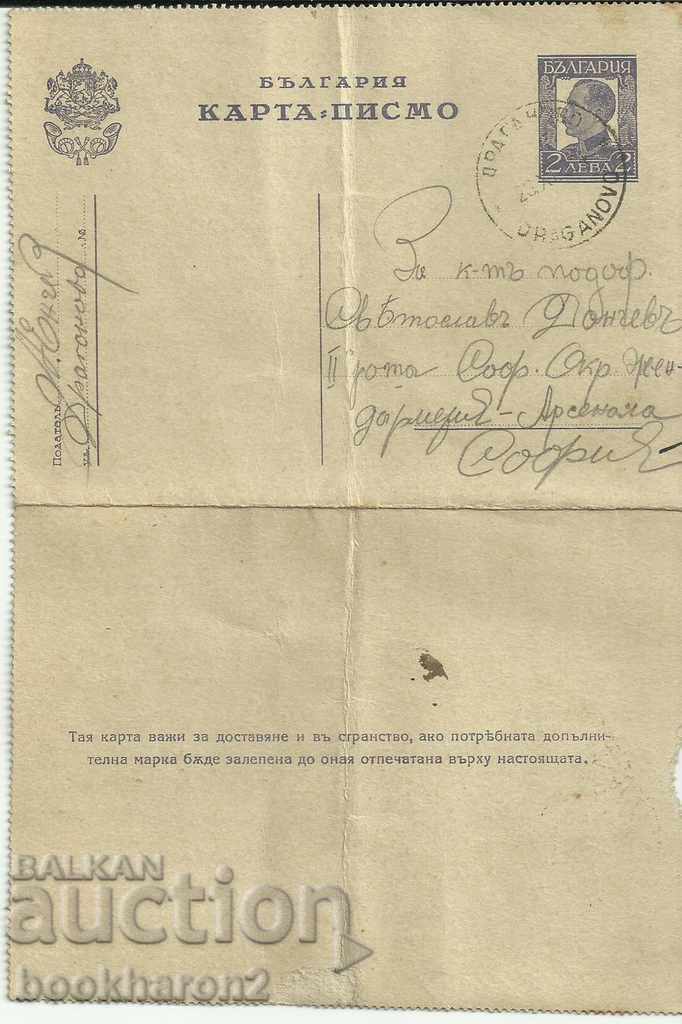 БЪЛГАРИЯ
КАРТА-ПИСМО
БЪЛГАРИЯ
2 ЛЕВА 2
DRAGANOVO
Податель
ул.
№
За к-тъ подоф.
Свѣтославъ Дончевъ
II рота Соф. Окр. Жен-
дармерия - Арсенала
София
Тая карта важи за доставяне и въ странство, ако потрѣбната допълни-
телна марка бѫде залепена до оная отпечатана върху настоящата.
BALKAN
auction
bookharon2